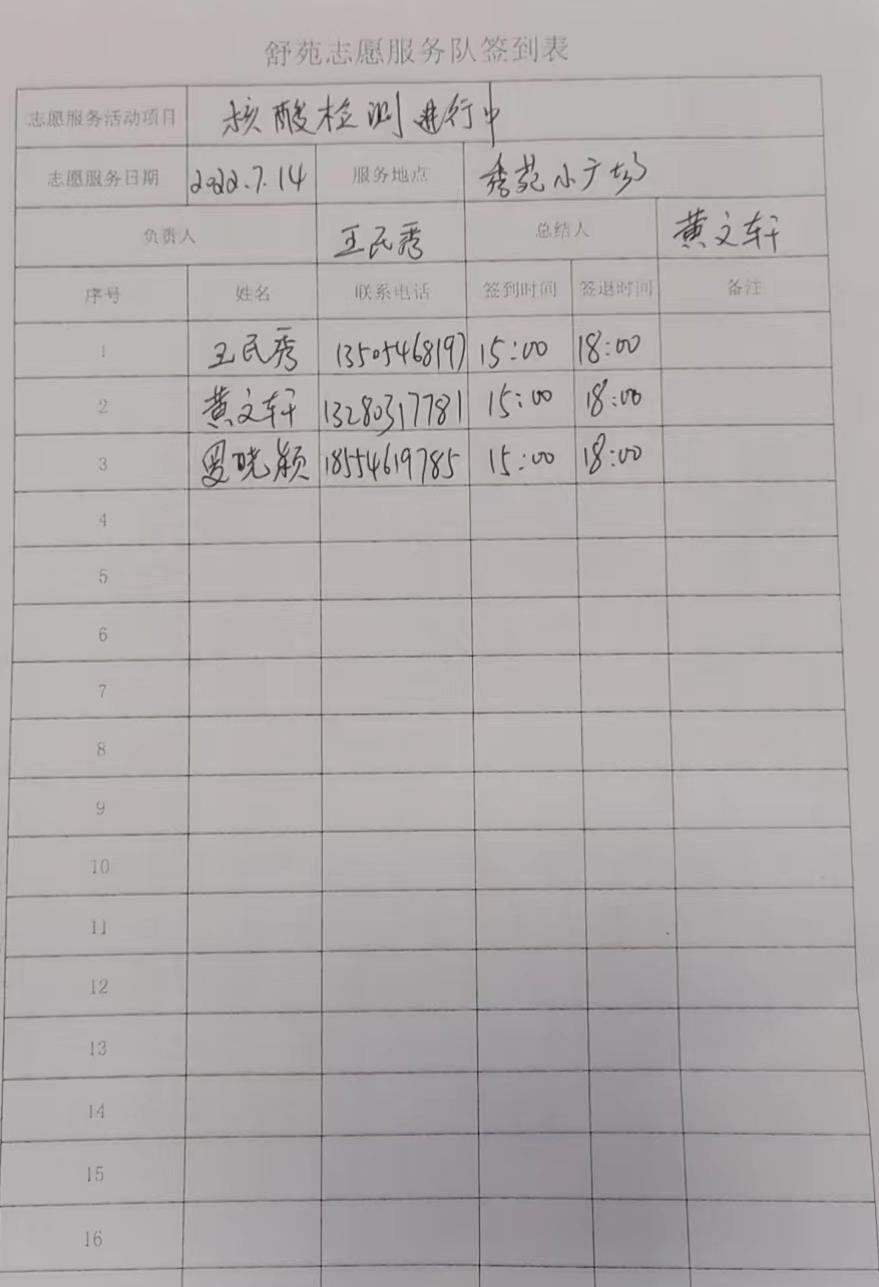 舒苑志愿服务队签到表
志愿服务活动项目 核酸检测进行中
志愿服务日期 2022.7.14 服务地点 秀苑小广场
负责人 王民秀 总结人 黄文轩
序号 姓名 联系电话 签到时间 签退时间 备注
1 王民秀 13505468197 15:00 18:00
2 黄文轩 13280317781 15:00 18:00
3 晓颖 18554619785 15:00 18:00
4
5
6
7
8
9
10
11
12
13
14
15
16